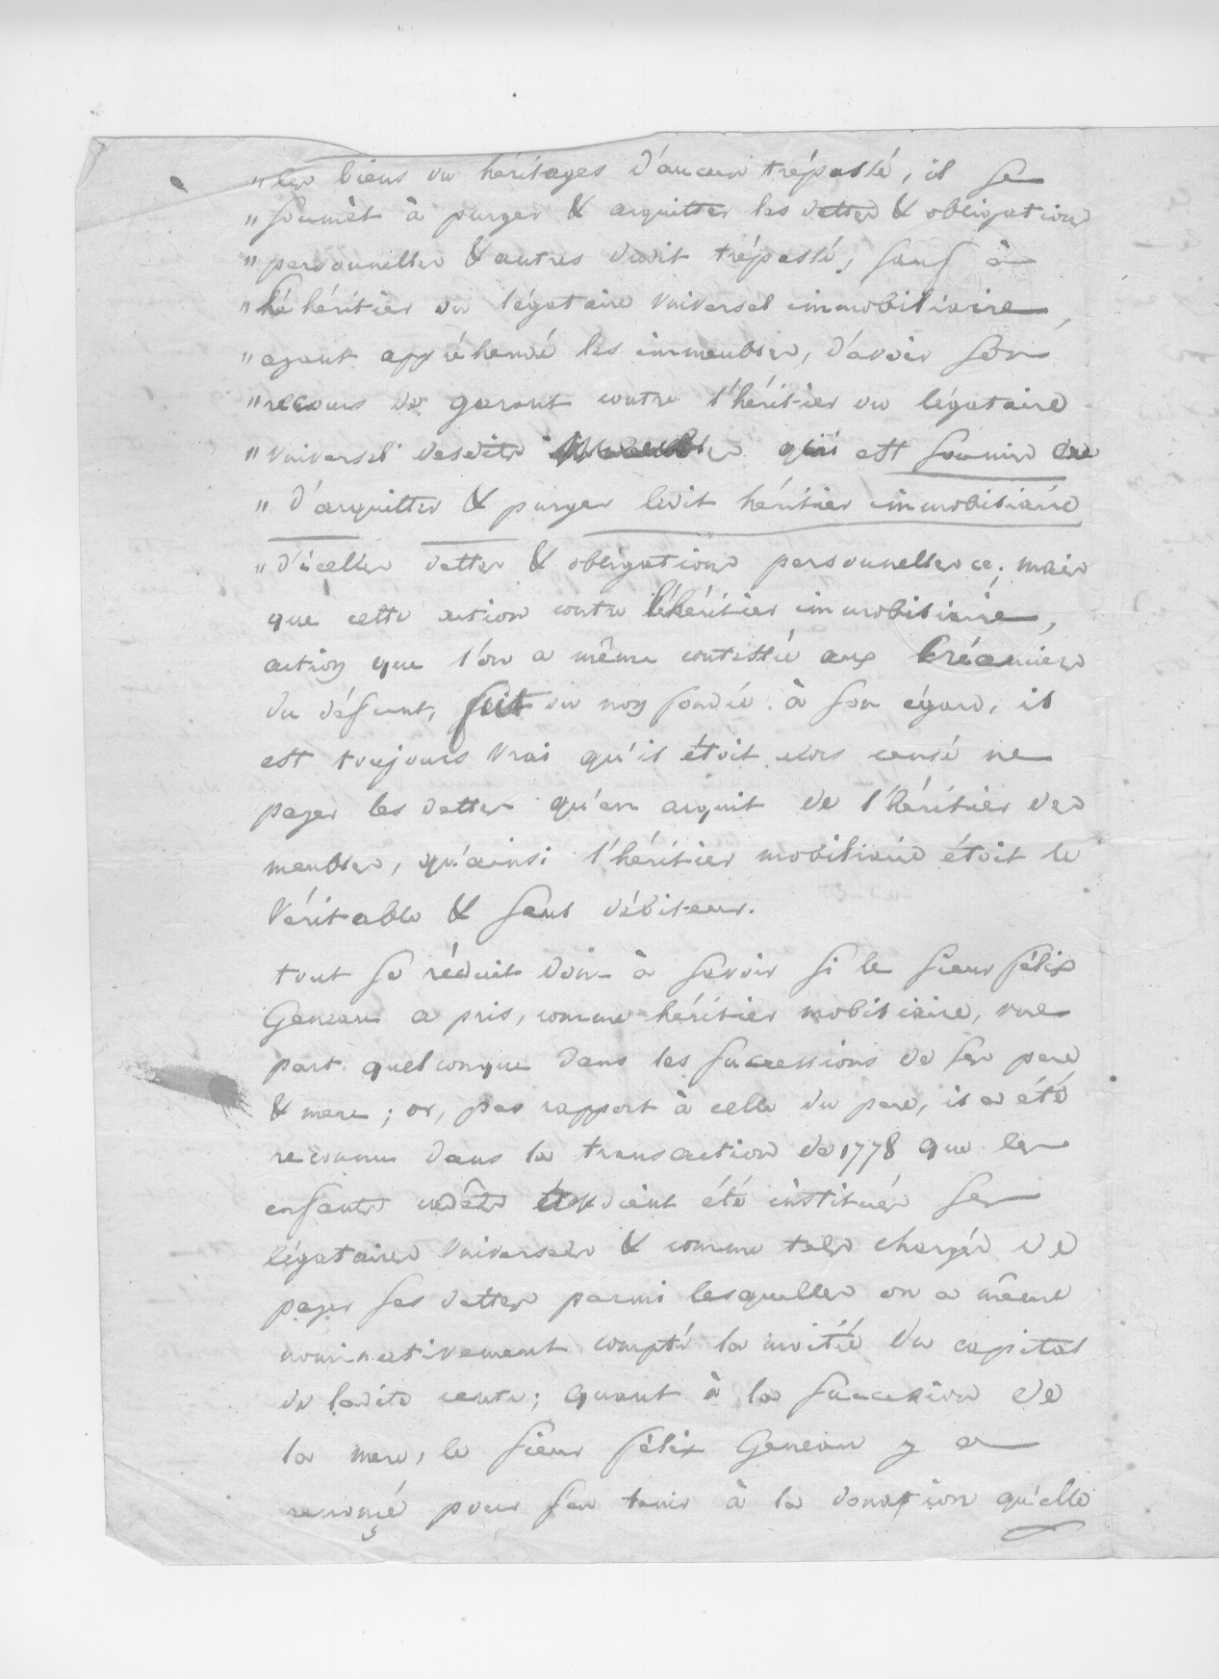 " les biens ou héritages d'aucun trépassé, il se
" soumèt à purger & acquitter les dettes & obligations
" personnelles & autres dudit trépassé, sauf à
" l'héritier ou légataire universel immobiliaire,
" ayant appréhendé les immeubles, d'avoir son
" recours de garant contre l'héritier ou légataire
" universel desdits meubles qui est soumis
" d'acquitter & purger ledit héritier immobiliaire
" d'icelles dettes & obligations personnelles ; mais
que cette action contre l'héritier immobiliaire,
action que l'on a même contesté aux Créanciers
du défunt, soit ou non fondée à son égard, il
est toujours vrai qu'il étoit alors censé ne
payer les dettes qu'en acquit de l'héritier des
meubles, qu'ainsi l'héritier mobiliaire étoit le
véritable & seul débiteur.
tout se réduit donc à savoir si le sieur félix
Geneau a pris, comme héritier mobiliaire, une
part quelconque dans les successions de ses pere
& mere ; or, par rapport à celle du pere, il a été
reconnu dans la transaction de 1778 que les
enfants cadets avoient été institués ses
légataires universels & comme tels chargés de
payer ses dettes parmi lesquelles on a même
nominativement compté la moitié du capital
de ladite rente ; quant à la succession de
la mere, le sieur félix Geneau y a
renoncé pour s'en tenir à la donation qu'elle